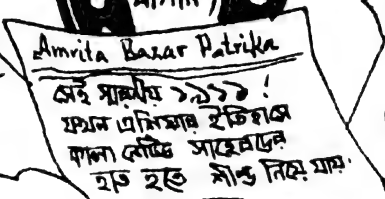 Amrita Bazar Patrika
সেই স্মরণীয় ১৯১১ !
যখন এশিয়ার ইতিহাসে
কালা নেটিভ সাহেবদের
হাত হতে শীল্ড নিয়ে যায়.